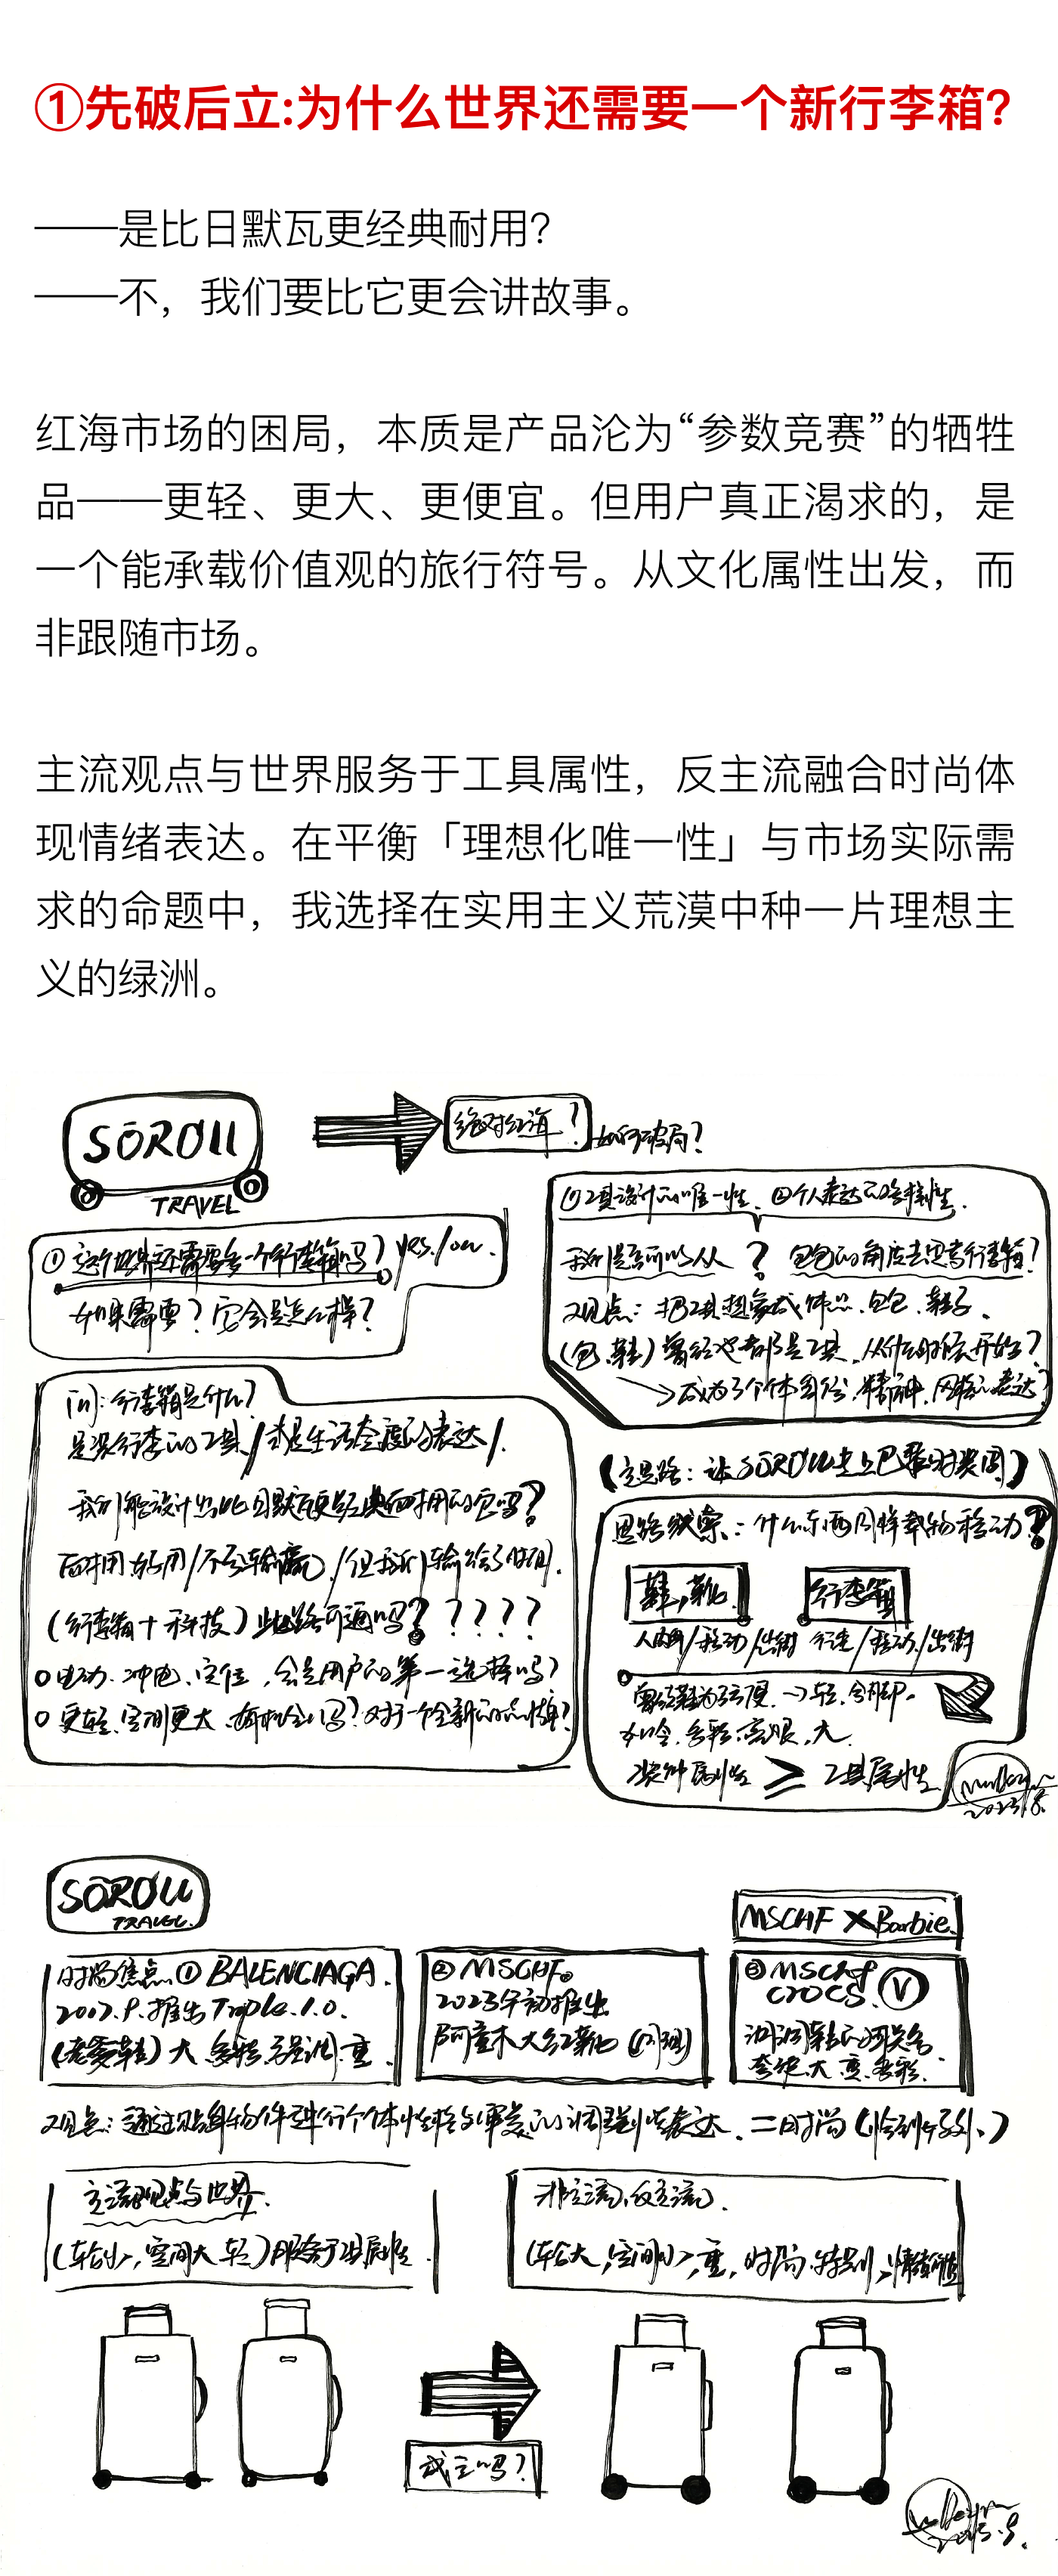 ①先破后立:为什么世界还需要一个新行李箱?
——是比日默瓦更经典耐用?
——不，我们要比它更会讲故事。
红海市场的困局，本质是产品沦为“参数竞赛”的牺牲
品——更轻、更大、更便宜。但用户真正渴求的，是
一个能承载价值观的旅行符号。从文化属性出发，而
非跟随市场。
主流观点与世界服务于工具属性，反主流融合时尚体
现情绪表达。在平衡「理想化唯一性」与市场实际需
求的命题中，我选择在实用主义荒漠中种一片理想主
义的绿洲。
SOROll
TRAVEL
绝对红海?
如何破局?
①这个世界还需要多一个行李箱吗? yes/on.
如果需要?它会是怎么样?
问:行李箱是什么?
是装行李的工具/或是生活态度的表达/.
我们能设计出比日默瓦更经典耐用的它吗?
耐用好用/不会输赢/但我们输给了时间.
(行李箱+科技)此路可通吗?????
电动.冲电.定位,会是用户的第一选择吗?
更轻.空间更大.有机会吗?对于一个全新的品牌?
①工具设计的唯一性.②个人表达的独特性.
我们是否可以从?包包的角度去思考行李箱?
观点:把工具想象成饰品.包包.鞋子.
(包.鞋)曾经也都是工具.从什么时候开始?
成为了个体身份.精神.风格的表达?
(主思路:让SOROLL走上巴黎时装周)
思路线索:什么东西同样载物移动?
鞋,靴.
行李箱
人脚/移动/出街 行走/移动/出街
曾经鞋为了舒服→轻,合脚.
如今.多彩,高跟,大.
装饰属性≥工具属性
2023.8.
SOROLL
TRAVEL.
时尚焦点①BALENCIAGA.
2017.9.推出Triple.S.
(老爹鞋)大.多彩.强调.重
②MSCHF.
2023年初推出
阿童木大红靴
MSCHF X Barbie.
③MSCHF
CROCS. V
洞洞鞋
大.重.多彩.
观点:通过贴身物件进行个体性格与审美的表达.=时尚
主流观点与世界.
(轮小,空间大.轻)服务于工具属性.
非主流,反主流.
(轮大,空间小,重,时尚.特别,情绪价值
成立吗?